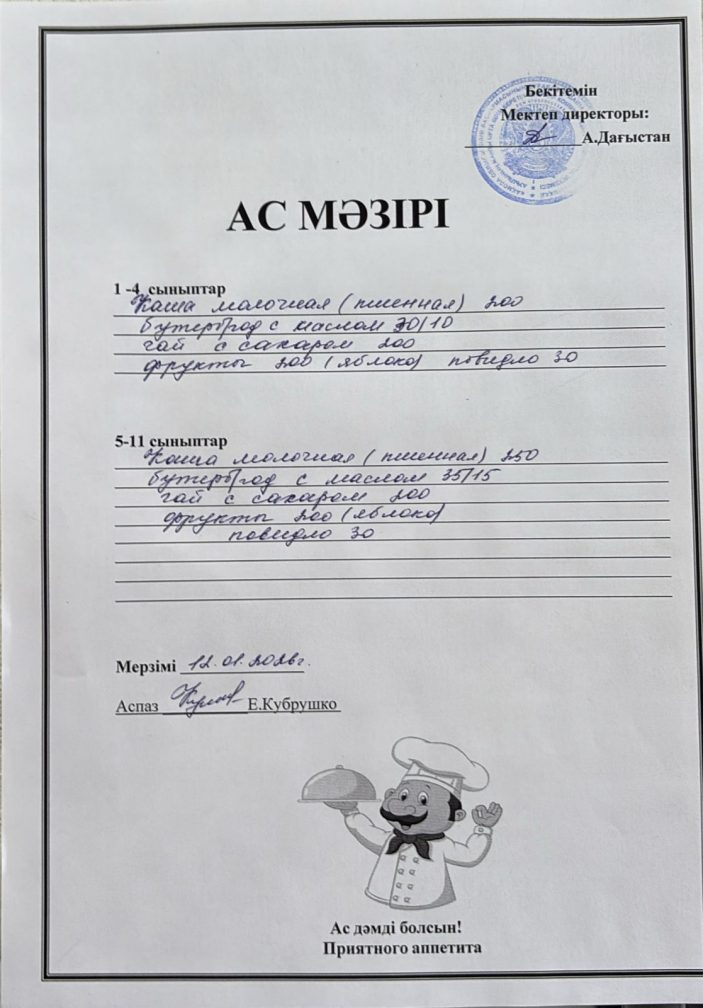 Бекітемін
Мектеп директоры:
А.Дағыстан
АС МӘЗІРІ
1 -4 сыныптар
Каша молочная (пшенная) 200
бутерброд с маслом 30/10
чай с сахаром 200
фрукты 200 (яблоко) повидло 30
5-11 сыныптар
Каша молочная (пшенная) 250
бутерброд с маслом 35/15
чай с сахаром 200
фрукты 200 (яблоко)
повидло 30
Мерзімі 12.01.2026г.
Аспаз Е.Кубрушко
Ас дәмді болсын!
Приятного аппетита